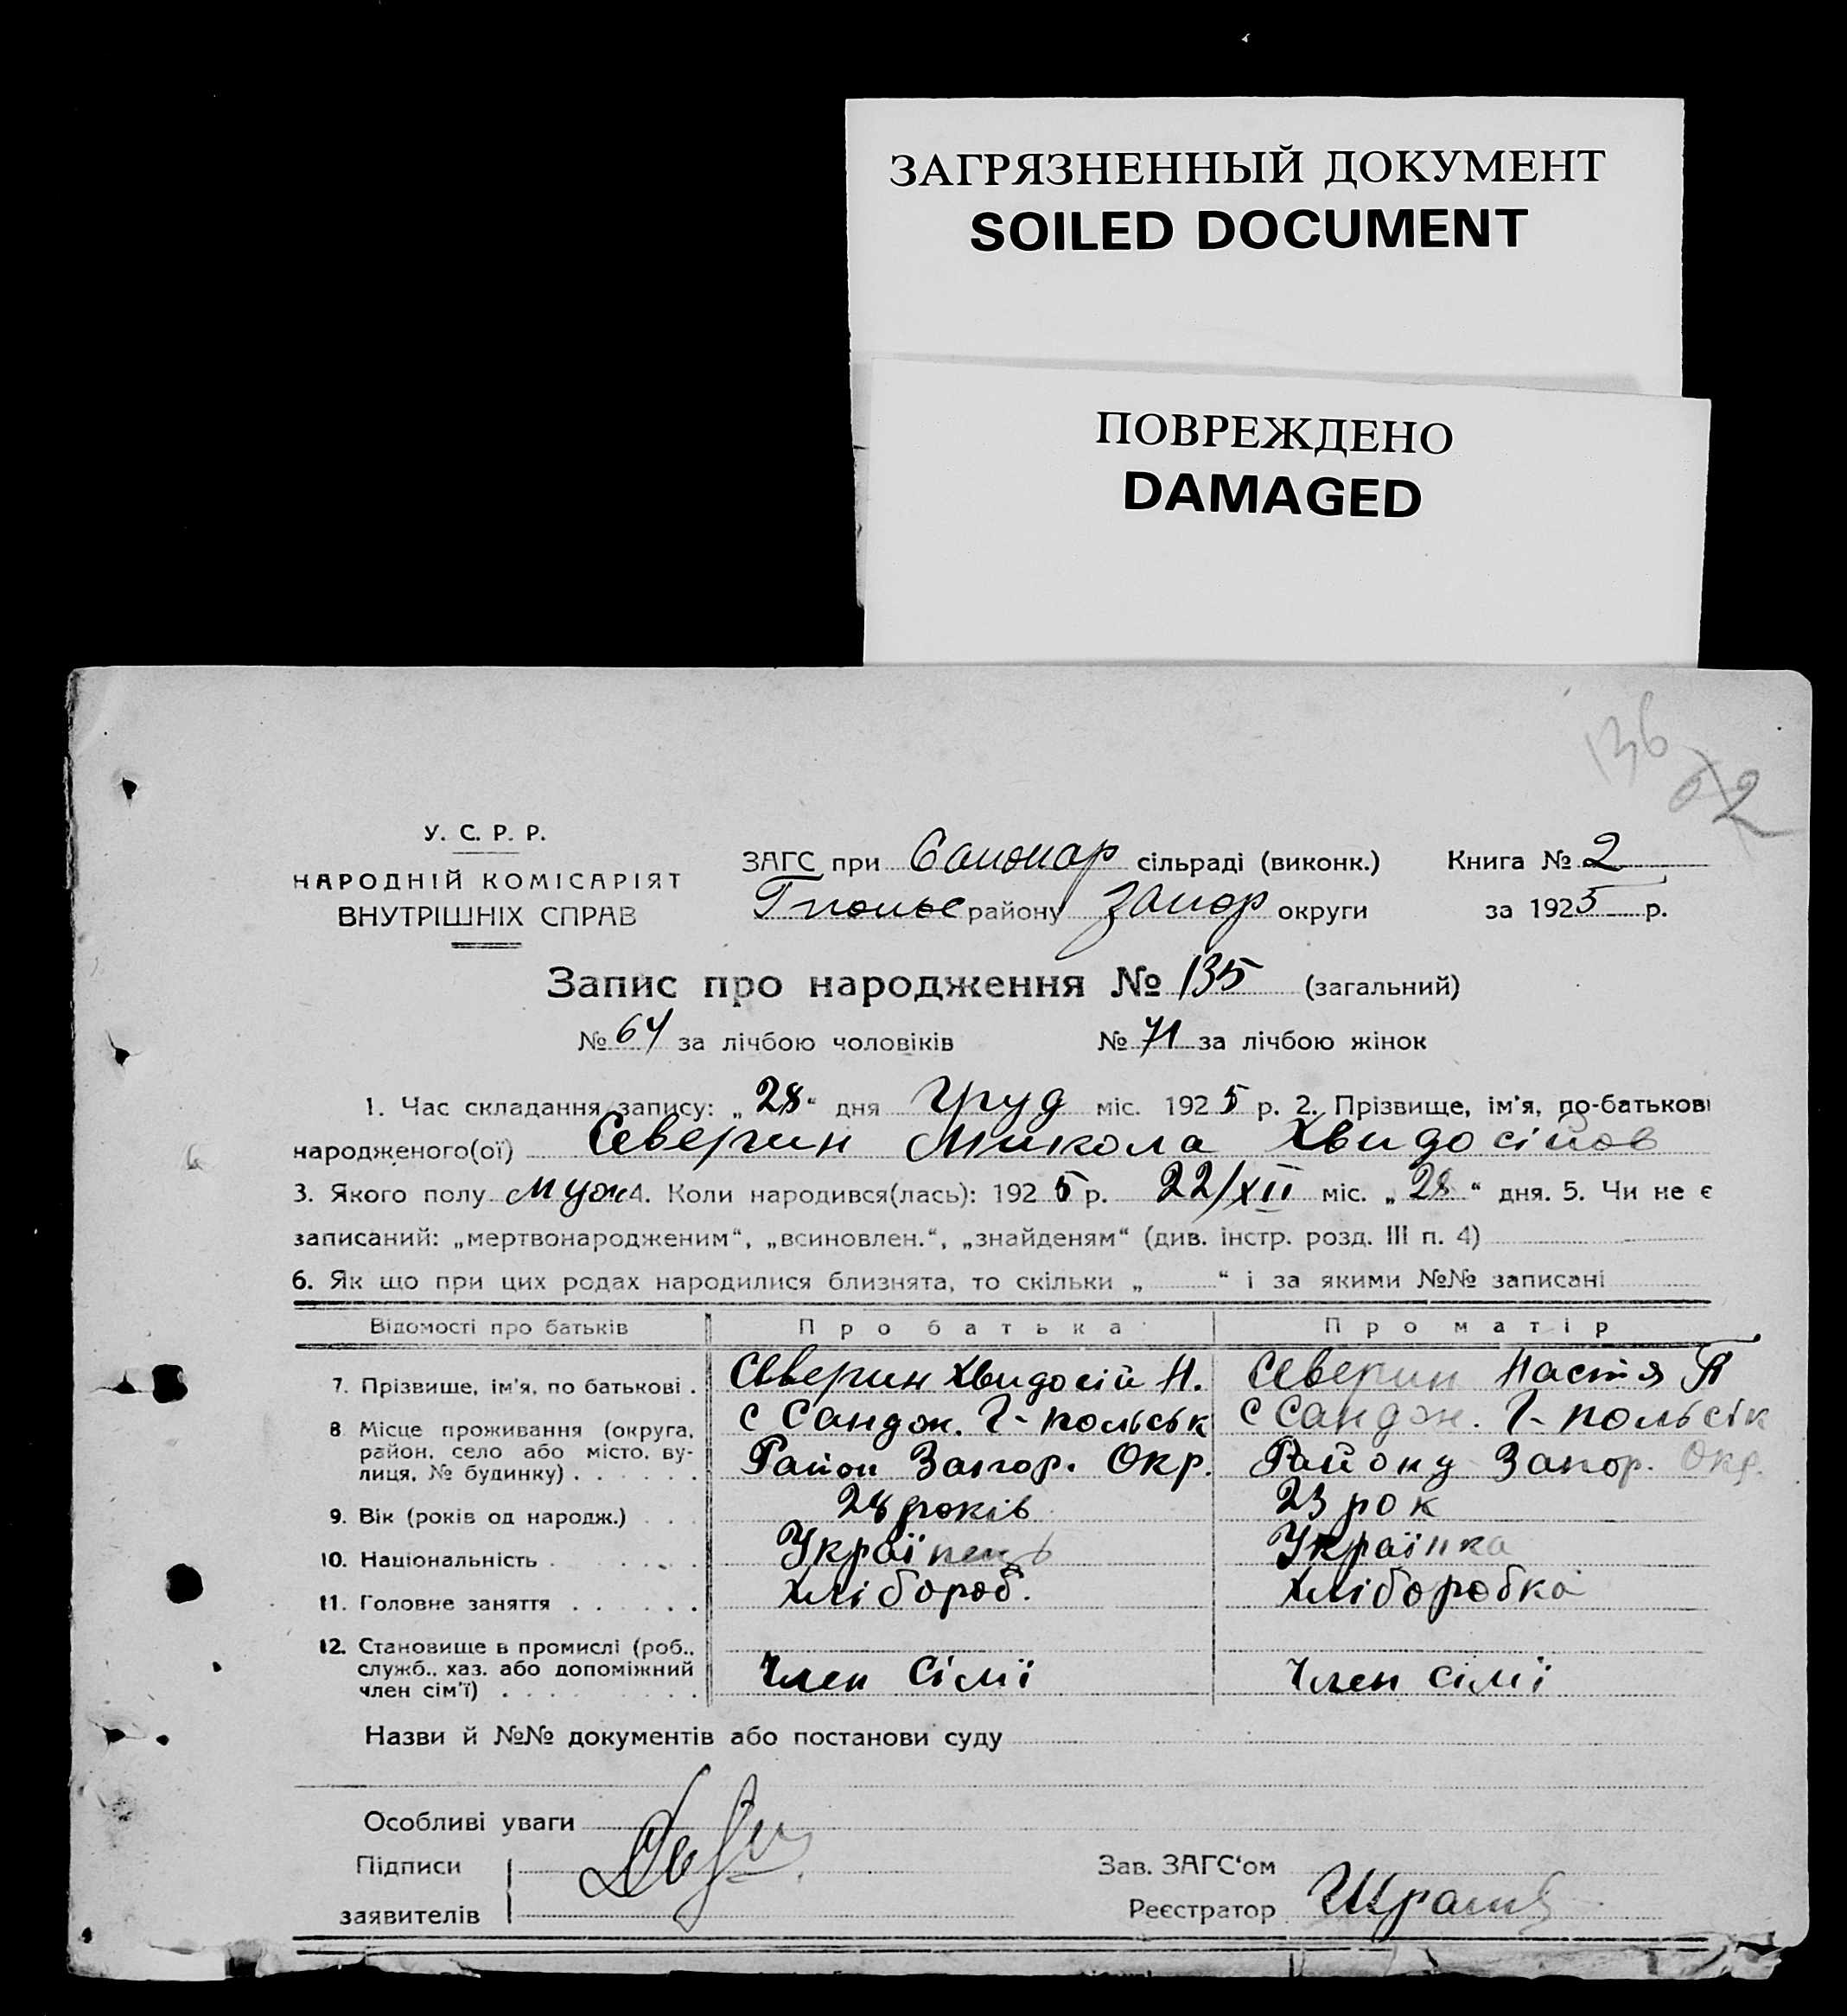 ЗАГРЯЗНЕННЫЙ ДОКУМЕНТ
SOILED DOCUMENT
ПОВРЕЖДЕНО
DAMAGED
136
2
У. С. Р. Р.
НАРОДНІЙ КОМІСАРІЯТ
ВНУТРІШНІХ СПРАВ
ЗАГС при сільраді (виконк.) Книга № 2
району Запор округи за 1925 р.
Запис про народження № 135 (загальний)
№ 64 за лічбою чоловіків № 71 за лічбою жінок
1. Час складання запису: „28“ дня Груд міс. 1925 р. 2. Прізвище, ім'я, по-батькові
народженого(ої) Северин Микола Хвидосійов
3. Якого полу муж 4. Коли народився(лась): 1925 р. 22/XII міс. „28“ дня. 5. Чи не є
записаний: „мертвонародженим“, „всиновлен.“, „знайденям“ (див. інстр. розд. III п. 4)
6. Як що при цих родах народилися близнята, то скільки „ “ і за якими №№ записані
Відомості про батьків Про батька Про матір
7. Прізвище, ім'я, по батькові . Северин Хвидосій Н. Северин Настя П
8 Місце проживання (округа, район, село або місто, вулиця, № будинку) . . . . . . с Сандж. Г-польськ с Сандж. Г-польськ
Район Запор. Окр. Району Запор. Окр.
9. Вік (років од народж.) . . . 28 років 23 рок
10. Національність . . . . . Українець Українка
11. Головне заняття . . . . . . хлібороб. хліборобка
12. Становище в промислі (роб., служб., хаз. або допоміжний член сім'ї) . . . . . . . . . Член Сімї Член сімї
Назви й №№ документів або постанови суду
Особливі уваги
Підписи
заявителів
Зав. ЗАГС'ом
Реєстратор